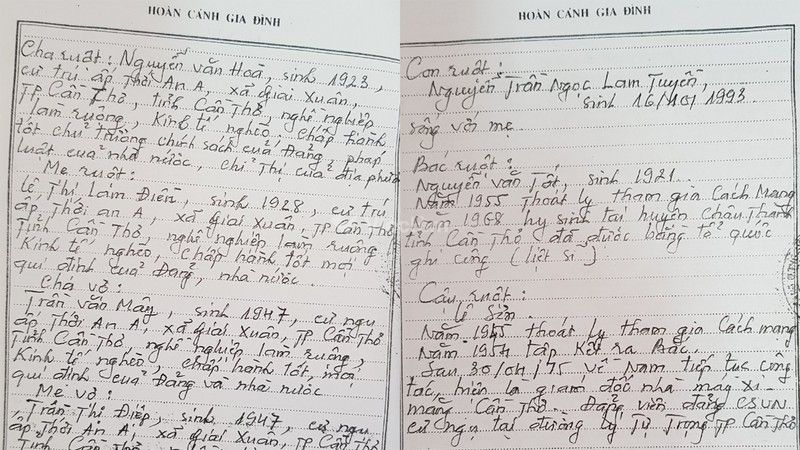 HOÀN CẢNH GIA ĐÌNH
Cha ruột: Nguyễn Văn Hoà, sinh 1923,
cư trú ấp Thới An A, xã Giai Xuân,
TP Cần Thơ, tỉnh Cần Thơ, nghề nghiệp
làm ruộng, Kinh tế nghèo. chấp hành
tốt chủ trương chính sách của Đảng, pháp
luật của nhà nước, chỉ thị của địa phương
Mẹ ruột:
Lê Thị Lám Điền, sinh 1928, cư trú
ấp Thới an A, xã Giai Xuân, TP Cần Thơ
Tỉnh Cần Thơ, nghề nghiệp làm ruộng,
Kinh tế nghèo, chấp hành tốt mọi
qui định của Đảng, nhà nước.
Cha vợ:
Trần Văn Mây, sinh 1947, cư ngụ
ấp Thới An A, xã Giai Xuân, TP Cần Thơ
Tỉnh Cần Thơ, nghề nghiệp làm ruộng,
Kinh tế nghèo, chấp hành tốt, mọi
qui định của Đảng và nhà nước
Mẹ vợ:
Trần Thị Điệp, sinh 1947, cư ngụ
ấp Thới An A, xã Giai Xuân, TP Cần Thơ
HOÀN CẢNH GIA ĐÌNH
Con ruột:
Nguyễn Trần Ngọc Lam Tuyền,
sinh 16/10/1993
sống với mẹ
Bác ruột:
Nguyễn Văn Tốt, sinh 1921.
Năm 1955 thoát ly tham gia Cách Mạng
Năm 1968 hy sinh tại huyện Châu Thành
tỉnh Cần Thơ đã được bằng tổ quốc
ghi công (liệt sĩ)
Cậu ruột:
Lê Sỉn
Năm 1945 thoát ly tham gia Cách mạng
Năm 1954 tập Kết ra Bắc.
Sau 30/04/75 về Nam tiếp tục công
tác, hiện là giám đốc nhà máy xi
măng Cần Thơ. Đảng viên đảng CSVN
cư ngụ tại đường Lý Tự Trọng TP Cần Thơ